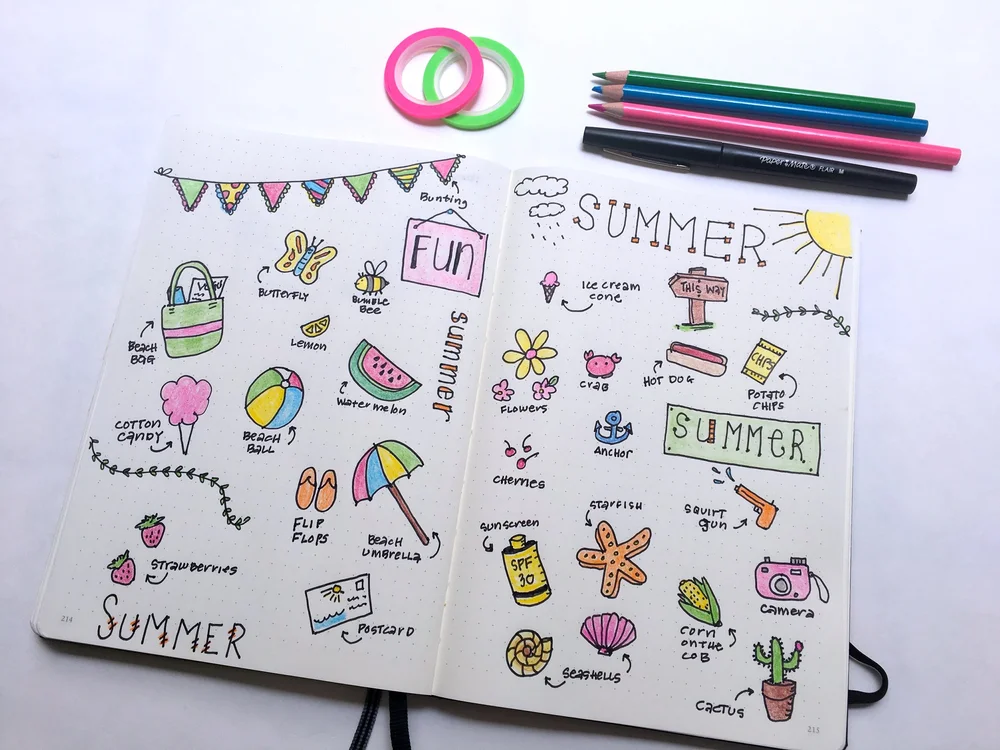 PaperMate® FLAIR M
Bunting
Fun
BUTTERFLY
BUMBLE
BEE
Lemon
BEACH
BAG
Summer
Watermelon
COTTON
CANDY
BEACH
BALL
FLIP
FLOPS
BEACH
UMBRELLA
STRAWBERRIES
POSTCARD
SUMMER
214
SUMMER
ICE CREAM
CONE
THIS WAY
FLOWERS
CRAB
HOT DOG
CHIPS
POTATO
CHIPS
SUMMER
ANCHOR
CHERRIES
SQUIRT
GUN
STARFISH
SUNSCREEN
SPF
30
CAMERA
CORN
ON THE
COB
SEASHELLS
CACTUS
215